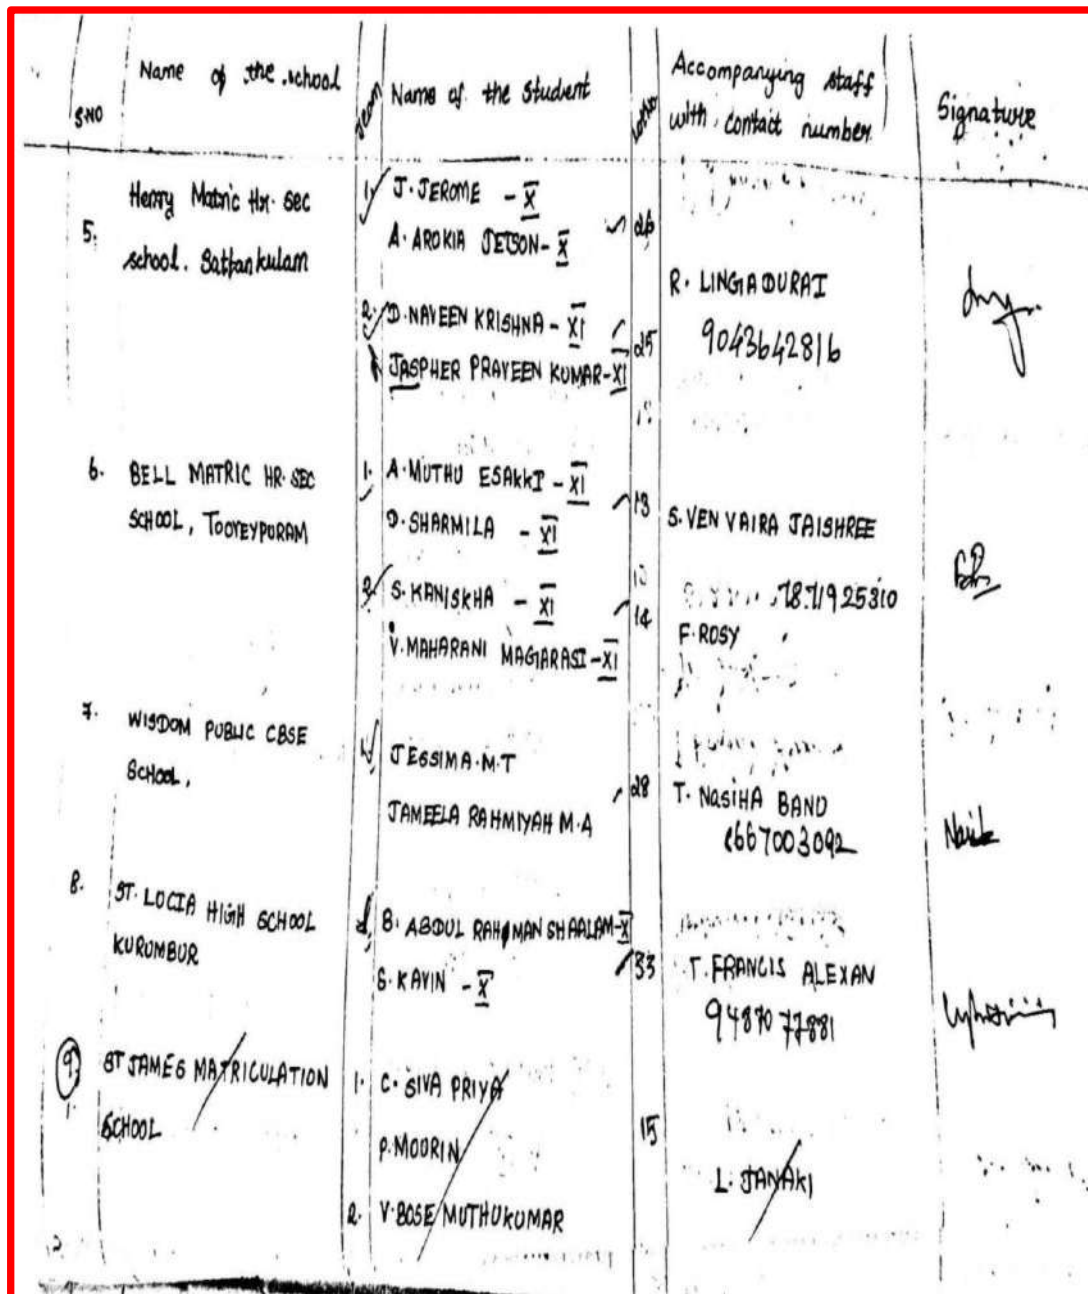 S.NO
Name of the school
Team
Name of the Student
Lot No
Accompanying staff
with contact number
Signature
5.
Henry Matric Hr. Sec
school. Sattankulam
1. J. JEROME - X
A. AROKIA JETSON - X
26
2. D. NAVEEN KRISHNA - XI
JASPHER PRAVEEN KUMAR - XI
25
R. LINGADURAI
9043642816
6. BELL MATRIC HR. SEC
SCHOOL, TOOVEYPURAM
1. A. MUTHU ESAKKI - XI
D. SHARMILA - XI
13
2. S. KANISKHA - XI
V. MAHARANI MAGARASI - XI
14
S. VEN VAIRA JAISHREE
7871925310
F. ROSY
7. WISDOM PUBLIC CBSE
SCHOOL,
1. JESSIMA. M. T
JAMEELA RAHMIYAH M. A
28
T. NASIHA BANU
667003092
8. ST. LUCIA HIGH SCHOOL
KURUMBUR
1. B. ABDUL RAHMAN SHAALAM - X
S. KAVIN - X
33
T. FRANCIS ALEXAN
9487077881
9. ST JAMES MATRICULATION
SCHOOL
1. C. SIVA PRIYA
P. MOORIN
2. V. BOSE MUTHUKUMAR
15
L. JANAKI